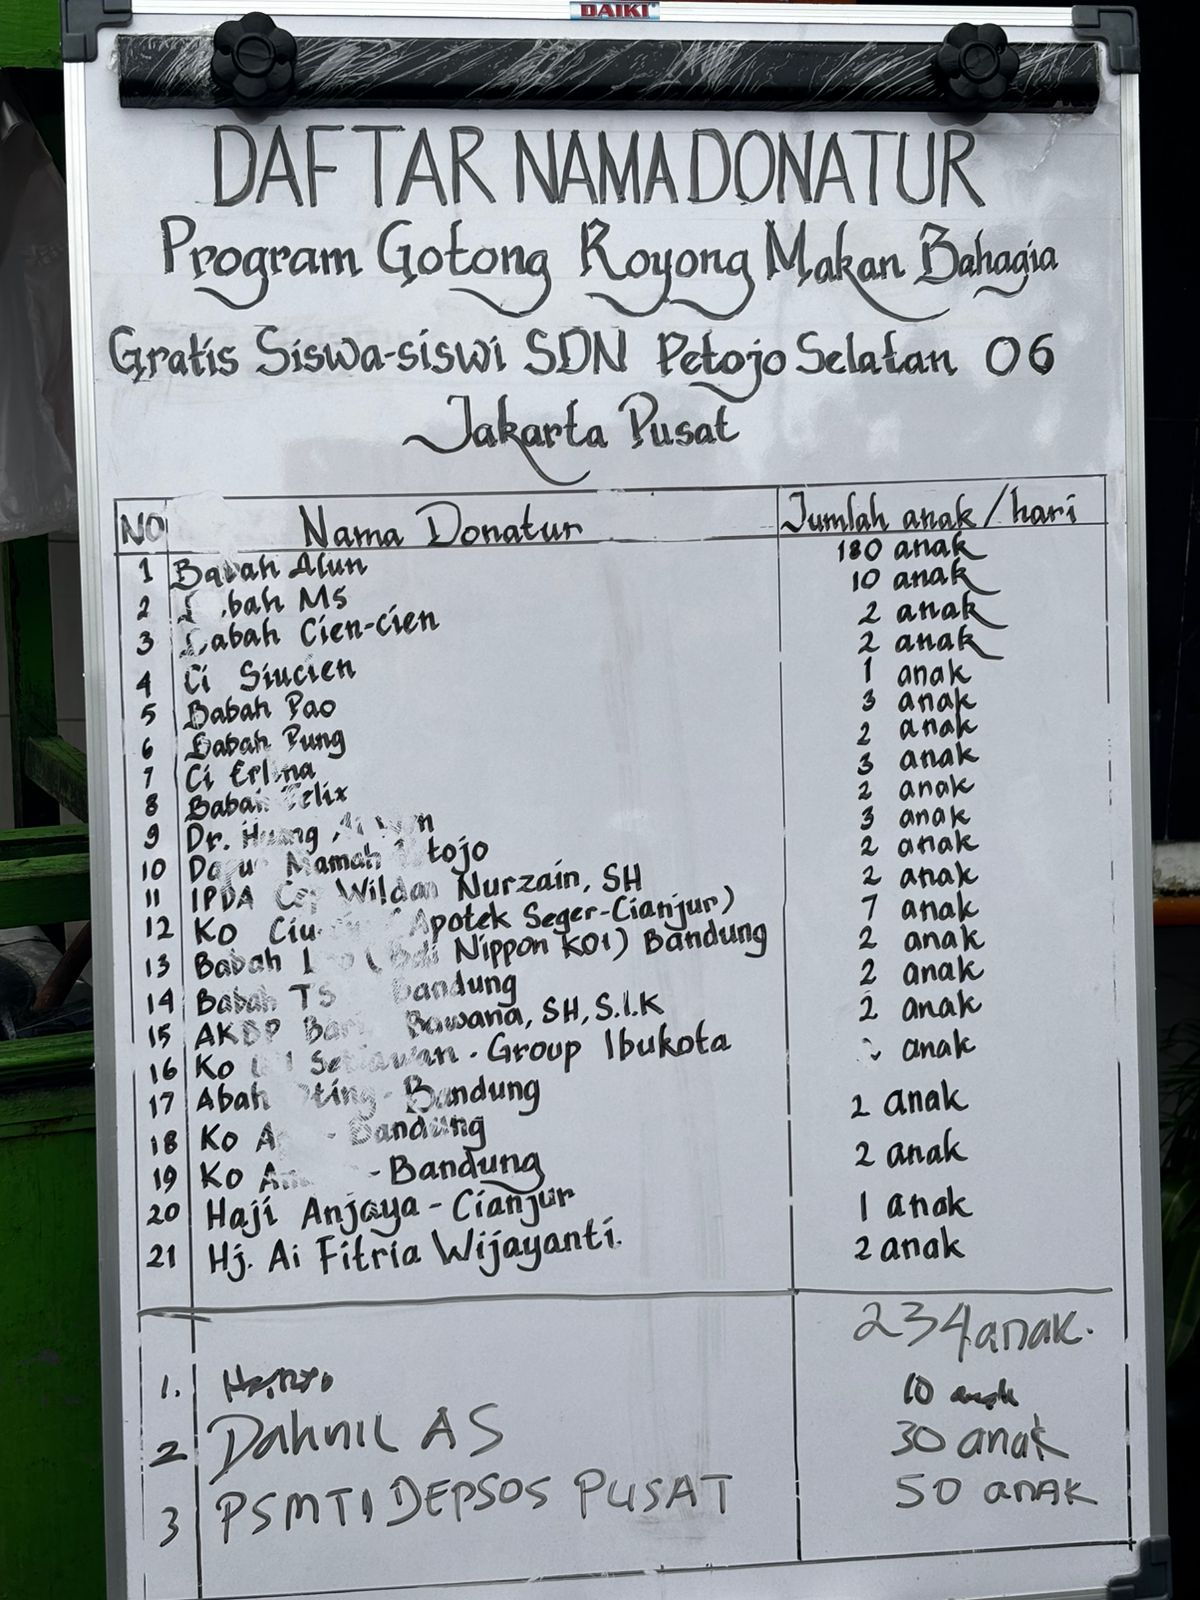 DAIKI
DAFTAR NAMA DONATUR
Program Gotong Royong Makan Bahagia
Gratis Siswa-siswi SDN Petojo Selatan 06
Jakarta Pusat
NO Nama Donatur Jumlah anak/hari
1 Babah Alun 180 anak
2 Babah Ms 10 anak
3 Babah Cien-cien 2 anak
4 Ci Siucien 2 anak
5 Babah Pao 1 anak
6 Babah Pung 3 anak
7 Ci Erlina 2 anak
8 Babah Felix 3 anak
9 Dr. Huang 2 anak
10 Dapur Mamah 3 anak
11 IPDA Wildan Nurzain, SH 2 anak
12 Ko (Apotek Seger-Cianjur) 2 anak
13 Babah Nippon KOI) Bandung 7 anak
14 Babah TS Bandung 2 anak
15 AKBP Bawana, SH, S.I.K 2 anak
16 Ko Setiawan - Group Ibukota 2 anak
17 Abah - Bandung anak
18 Ko - Bandung 2 anak
19 Ko - Bandung 2 anak
20 Haji Anjaya - Cianjur 1 anak
21 Hj. Ai Fitria Wijayanti. 2 anak
234 anak.
1. 10 anak
2 Dahnil AS 30 anak
3 PSMTI DEPSOS PUSAT 50 anak